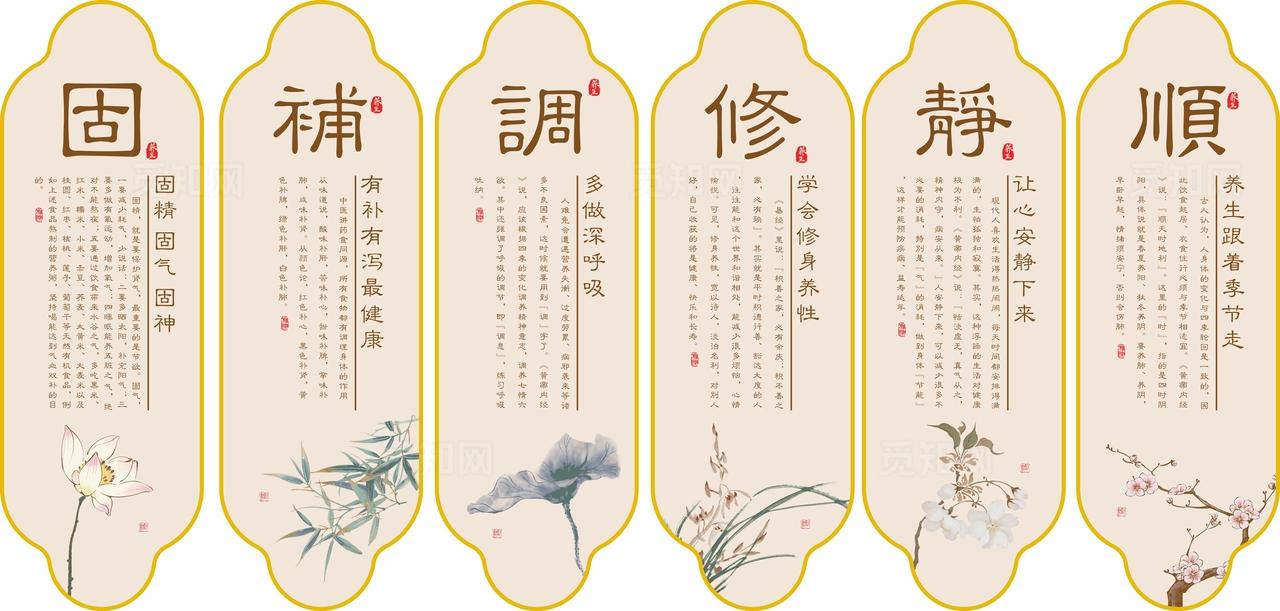 順
养生
养生跟着季节走
古人认为，人身体的变化与四季轮回是一致的，因
此饮食起居、衣食住行必须与季节相适宜。《黄帝内经
》说：「顺天时地利」。这里的「时」，指的是四时阴
阳，具体说就是春夏养阳、秋冬养阴。要养肺、养阴，
早卧早起，情绪须安宁，否则会伤肺。
靜
养生
让心安静下来
现代人喜欢生活得热热闹闹，每天时间都安排得满
满的，生怕孤独和寂寞。其实，这种浮躁的生活对健康
极为不利。《黄帝内经》说：「恬淡虚无，真气从之，
精神内守，病安从来。」人安静下来，可以减少很多不
必要的消耗，特别是「气」的消耗，做到身体「节能」
，这样才能预防疾病、益寿延年。
修
养生
学会修身养性
《易经》里说：「积善之家，必有余庆；积不善之
家，必有殃」。其实就是平时积德行善、豁达大度的人
，往往能和这个世界和谐相处，能减少很多烦恼，心情
愉悦。可见，修身养性，宽以待人，淡泊名利，对别人
好，自己收获的将是健康、快乐和长寿。
調
养生
多做深呼吸
人难免会遭遇营养失衡、过度劳累、病邪袭来等诸
多不良因素，这时候就要用到「调」字了。《黄帝内经
》说，应该根据四季的变化调养精神意志，调养七情六
欲。其中还强调了呼吸的调节，即「调息」，练习呼吸
吐纳。
補
养生
有补有泻最健康
中医讲药食同源，所有食物都有调理身体的作用
从味道说，酸味补肝，苦味补心，甜味补脾，辛味补
肺，咸味补肾。从颜色论，红色补心，黑色补肾，黄
色补脾，绿色补肝，白色补肺。
固
养生
固精 固气 固神
固精，就是要保护肾气，最重要的是节欲。固气，
一要减少耗气，少说话；二要多晒太阳，补充阳气；三
要多做有氧运动，增加氧气；四睡眠能养五脏之气，绝
对不能熬夜；五要通过饮食带来水谷之气，多吃黑米、
红米、糯米、小米、赤豆、荞麦、大黄米、大麦米以及
桂圆、红枣、核桃、莲子、葡萄干等天然有机食品，例
如上述食品熬制的营养粥，坚持喝能达到气血双补的目
的。
觅知网